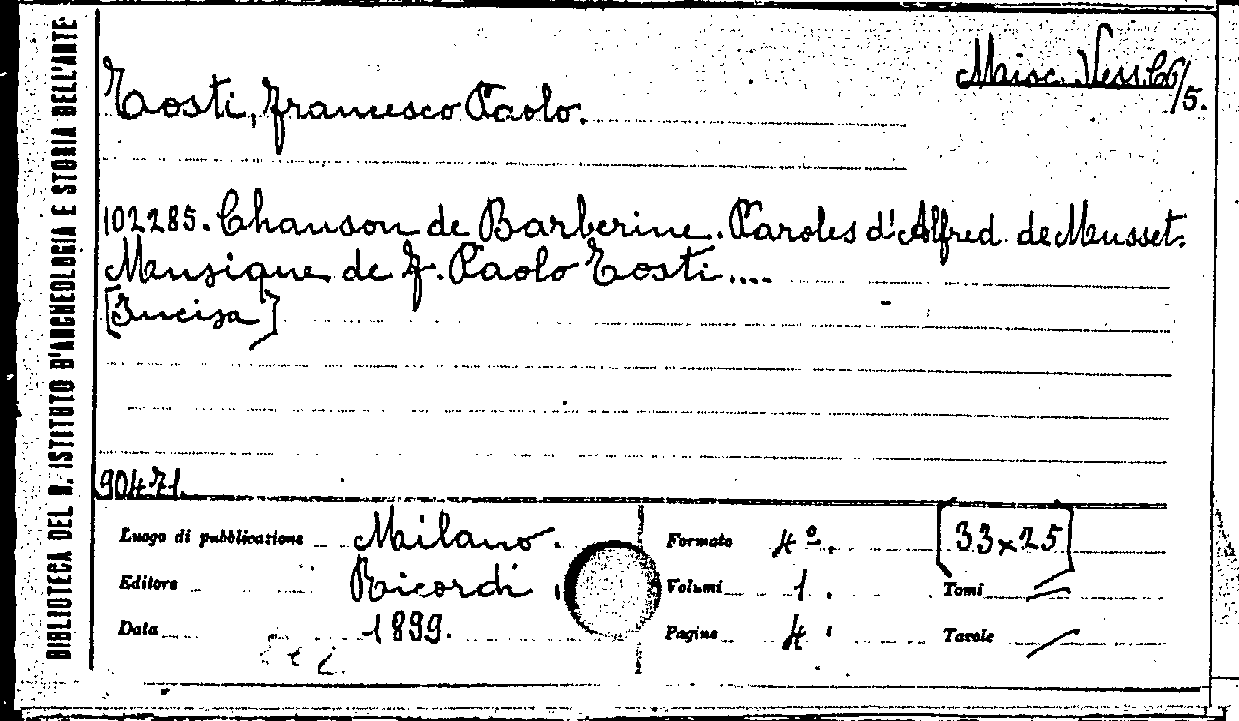 BIBLIOTECA DEL R. ISTITUTO D'ARCHEOLOGIA E STORIA DELL'ARTE
Misc. Vess. C6/5.
Tosti, Francesco Paolo.
102285. Chanson de Barberine. Paroles d'Alfred de Musset.
Musique de F. Paolo Tosti....
[Incisa]
90471.
Luogo di pubblicazione Milano.
Formato 4º. [33x25]
Editore Ricordi.
Volumi 1. Tomi
Data 1899.
Pagine 4. Tavole